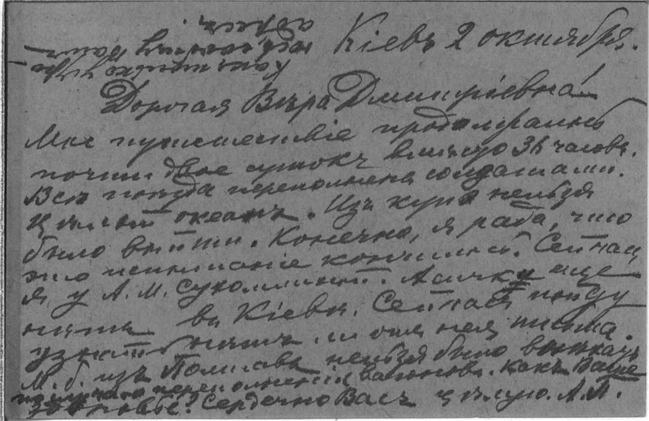 Кіевъ 2 октября.
Дорогая Вѣра Дмитріевна!
Мое путешествіе продолжалось
почти двое сутокъ вмѣсто 36 часовъ.
Всѣ поѣзда переполнены солдатами.
Цѣлый океанъ. Изъ купэ нельзя
было выйти. Конечно, я рада, что
это испытаніе кончилось. Сейчас
я у А. М. Сухомлиной. еще
нѣтъ въ Кіевѣ. Сейчасъ пойду
узнать нѣтъ ли отъ нея письма.
М. б. изъ Полтавы нельзя было выѣхать
переполненія вагоновъ. Какъ Ваше
здоровье? Сердечно Васъ цѣлую. А. Л.
адресъ.